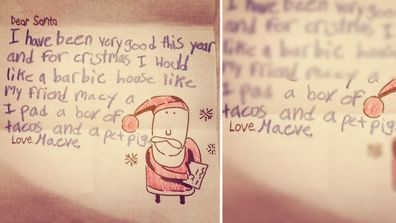 Dear Santa
I have been very good this year
and for cristmas I Would
like a barbie house like
my friend macy a
I pad a box of
tacos, and a pet pig.
Love, Maeve,
have been very
and for cristmas I
like a barbie house
my friend macy a
I pad a box of
tacos, and a pet pig.
Love, Maeve,